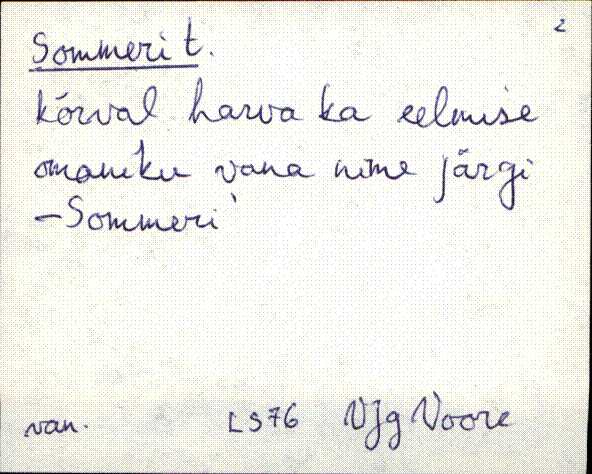 2
Sommeri t.
kõrval harva ka eelmise
omaniku vana nime järgi
– Sommeri
van. LS76 VJg Voore